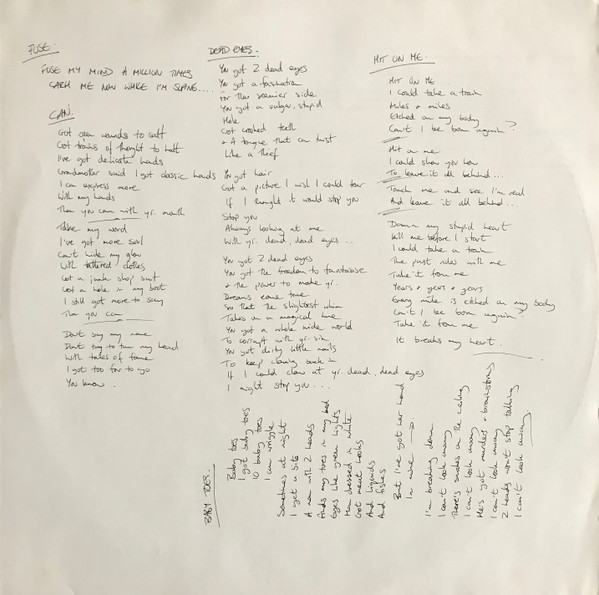 FUSE.
FUSE MY MIND A MILLION TIMES
CATCH ME NOW WHILE I'M SLIDING....
CAN.
Got own wounds to salt
Got trains of thought to halt
I've got delicate hands
Grandmother said I got classic hands
I can express more
With my hands
Than you can with yr. mouth
Take my word
I've got more soul
Can't hide my glow
With tattered clothes
Got a junk shop suit
Got a hole in my boot
I still got more to say
Than you can
Don't say my name
Don't try to turn my head
With tales of fame
I got too far to go
You know.
DEAD EYES.
You got 2 dead eyes
You got a fascination
For the seamier side
You got a vulgar, stupid
Hole
Got crooked teeth
+ A tongue that can twist
Like a thief
You got hair
Got a picture I wish I could tear
If I thought it would stop you
Stop you
Always looking at me
With yr. dead, dead eyes...
You got 2 dead eyes
You got the freedom to fantasise
+ the power to make yr.
Dreams come true
So that the slightest whim
Takes on a magical hue
You got a whole wide world
To corrupt with yr. sin
You got dirty little nails
To keep clawing back in
If I could claw at yr. dead, dead eyes
I might stop you...
HIT ON ME.
Hit on me
I could take a train
Miles + miles
Etched on my body
Can't I be born again?
Hit on me
I could show you how
To leave it all behind...
Touch me and see I'm real
And leave it all behind...
Damn my stupid heart
Kill me before I start
I could take a train
The past rides with me
Take it from me
Years + years + years
Every mile is etched on my body
Can't I be born again?
Take it from me
It breaks my heart.
BABY TOES.
Baby toes
I got baby toes
10 baby toes
I can wriggle
Sometimes at night
I get a bite
A man with 2 heads
Finds my toes in my bed
Eyes like green lights
Man dressed in white
Got meat hooks
And liquids
And fishes
But I've got her hand
In mine
I'm breaking down
I can't look away
There's snakes on the ceiling
I can't look away
He's got murders + brainstorms
I can't look away
2 heads won't stop talking
I can't look away